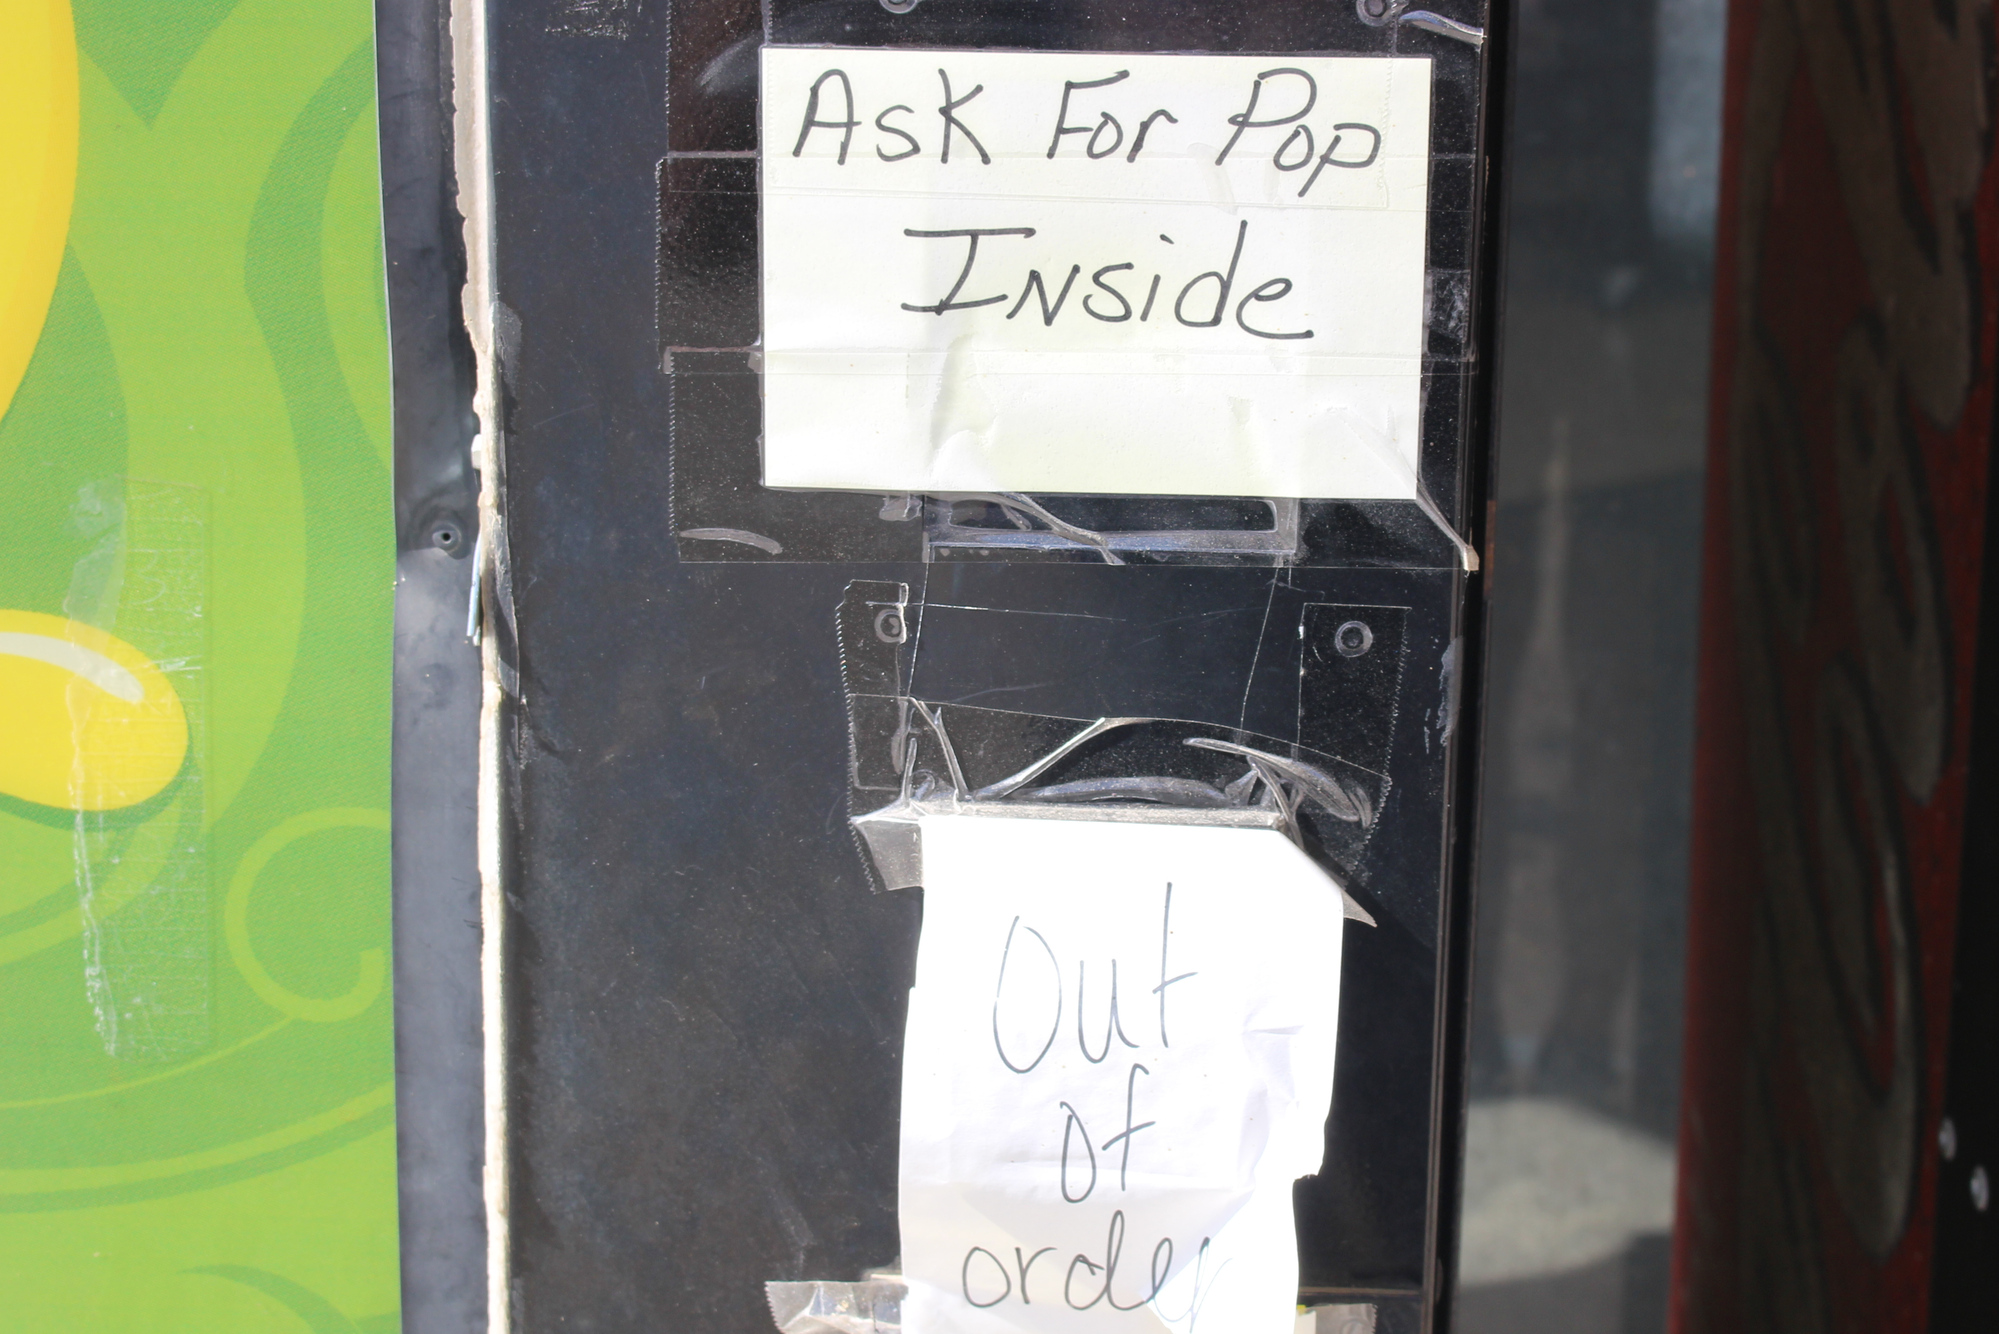 Ask For Pop
Inside
Out
of
order